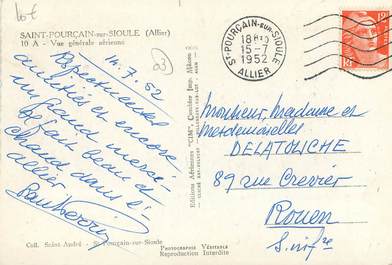 10€
SAINT-POURÇAIN-sur-SIOULE (Allier)
10 A - Vue générale aérienne
03
14.7.52
amitiés et encore
un grand merci
chaud dans l'
allier.
Editions Aériennes "CIM", Combier Imp. Mâcon
ST-POURÇAIN-sur-SIOULE
18H
15-7
1952
ALLIER
Monsieur, Madame et
Mesdemoiselles
DELATOUCHE
89 rue Crevier
Rouen
S. Infre
Coll. Saint-André - St-Pourçain-sur-Sioule
PHOTOGRAPHIE VÉRITABLE
Reproduction Interdite